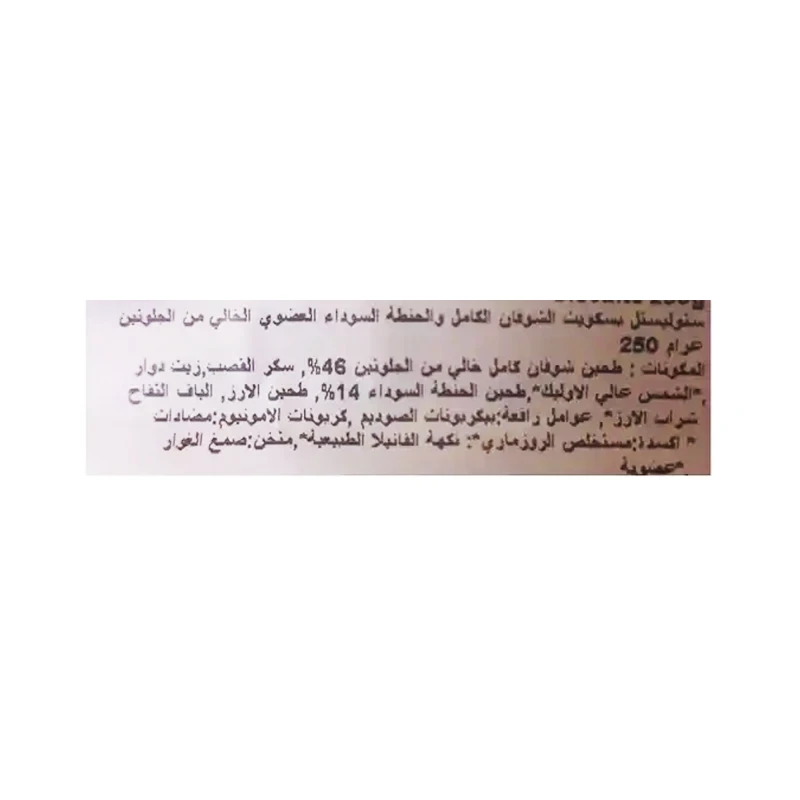 سنوليستل بسكويت الشوفان الكامل والحنطة السوداء العضوي الخالي من الجلوتين
غرام 250
المكونات : طحين شوفان كامل خالي من الجلوتين 46%, سكر القصب,زيت دوار
,*الشمس عالي الاوليك*,طحين الحنطة السوداء 14%, طحين الارز, الياف التفاح
شراب الارز*, عوامل رافعة:بيكربونات الصوديم ,كربونات الامونيوم:مضادات
* اكسدة:مستخلص الروزماري*: نكهة الفانيلا الطبيعية*,متخن:صمغ الغوار
.*عضوية